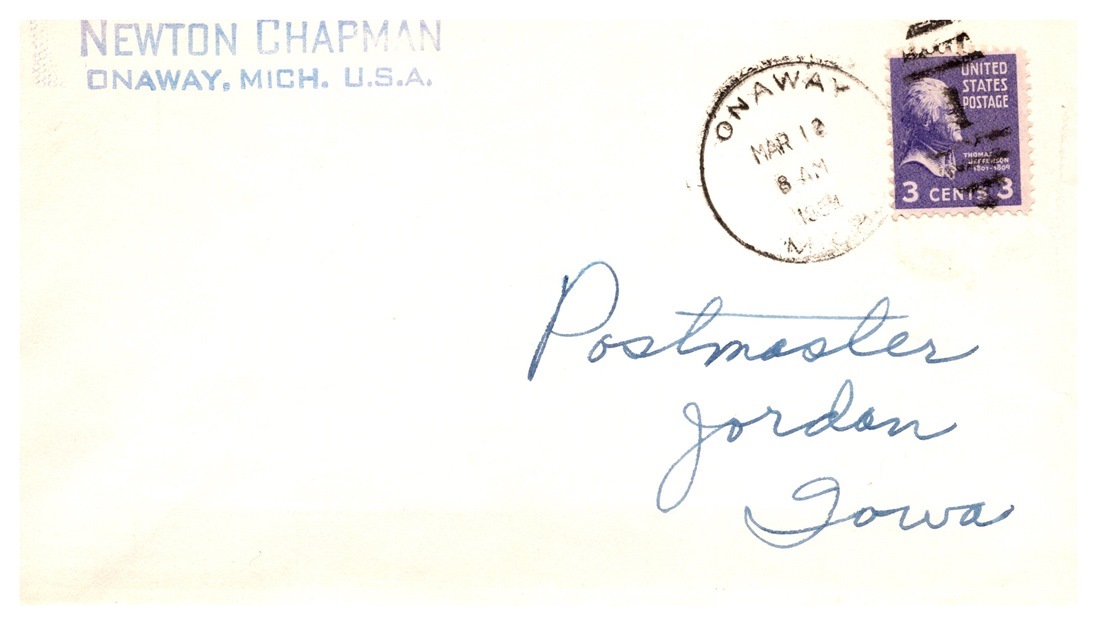 NEWTON CHAPMAN
ONAWAY, MICH. U.S.A.
ONAWAY
MAR 12
8 AM
UNITED
STATES
POSTAGE
THOMAS
JEFFERSON
1801-1809
3 CENTS 3
Postmaster
Jordan
Iowa